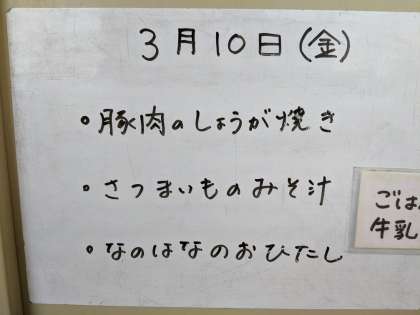 3月10日(金)
• 豚肉のしょうが焼き
• さつまいものみそ汁
• なのはなのおひたし
ごは
牛乳